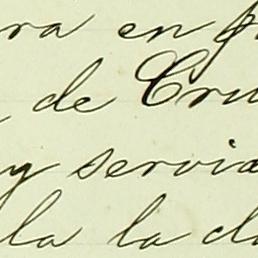 ra en p
de Cru
y servi
la la d